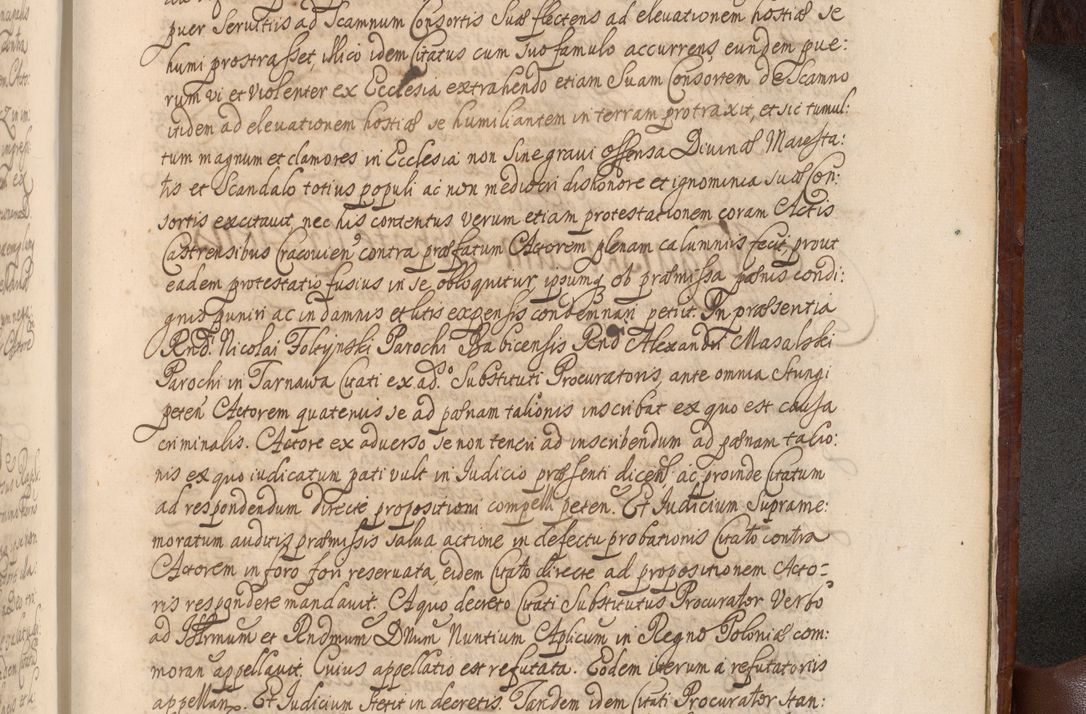 puer Servitiis ad Scamnum Consortis Suæ flectens ad elevationem hostiæ se
humi prostrasset, illico idem Citatus cum suo famulo accurrens eundem pue:
rum vi et violenter ex Ecclesia extrahendo etiam Suam Consortem de Scamno
itidem ad elevationem hostiæ se humiliantem in terram protraxit, et sic tumul:
tum magnum et clamores in Ecclesia non sine gravi offensa Divinæ Maiesta:
tis et Scandalo totius populi ac non mediocri dishonore et ignominia suæ Con:
sortis excitavit, nec his contentus verum etiam protestationem coram Actis
Castrensibus Cracovien contra præfatum Actorem plenam calumniis fecit prout
eadem protestatio fusius in se obloquitur, ipsumq ob præmissa pænis condi:
gnis puniri ac in damnis et litis expensis condemnari petiit. In præsentia
Rnd Nicolai Tolcynski Parochi Babicensis Rnd Alexandri Masalski
Parochi in Tarnawa Citati ex ad.o Substituti Procuratoris, ante omnia Stungi
peten Actorem quatenus se ad pænam talionis inscribat ex quo est causa
criminalis. Actore ex adverso se non teneri ad inscribendum ad pænam talio:
nis ex quo iudicatum pati vult in Judicio præsenti dicen ac proinde Citatum
ad respondendum directe propositioni compelli peten. Et Judicium Supra me:
moratum auditis præmissis salva actione in defectu probationis Citato contra
Actorem in foro fori reservata, eidem Citato directe ad propositionem Acto=
ris respondere mandavit. A quo decreto Citati Substitutus Procurator Verbo
ad Illrmum et Rndmum Dnum Nuntium Aplicum in Regno Poloniæ com:
moran appellavit. Cuius appellatio est refutata. Eodem iterum a refutatoriis
appellan. Et Judicium stetit in decretis. Tandem idem Citati Procurator stan: